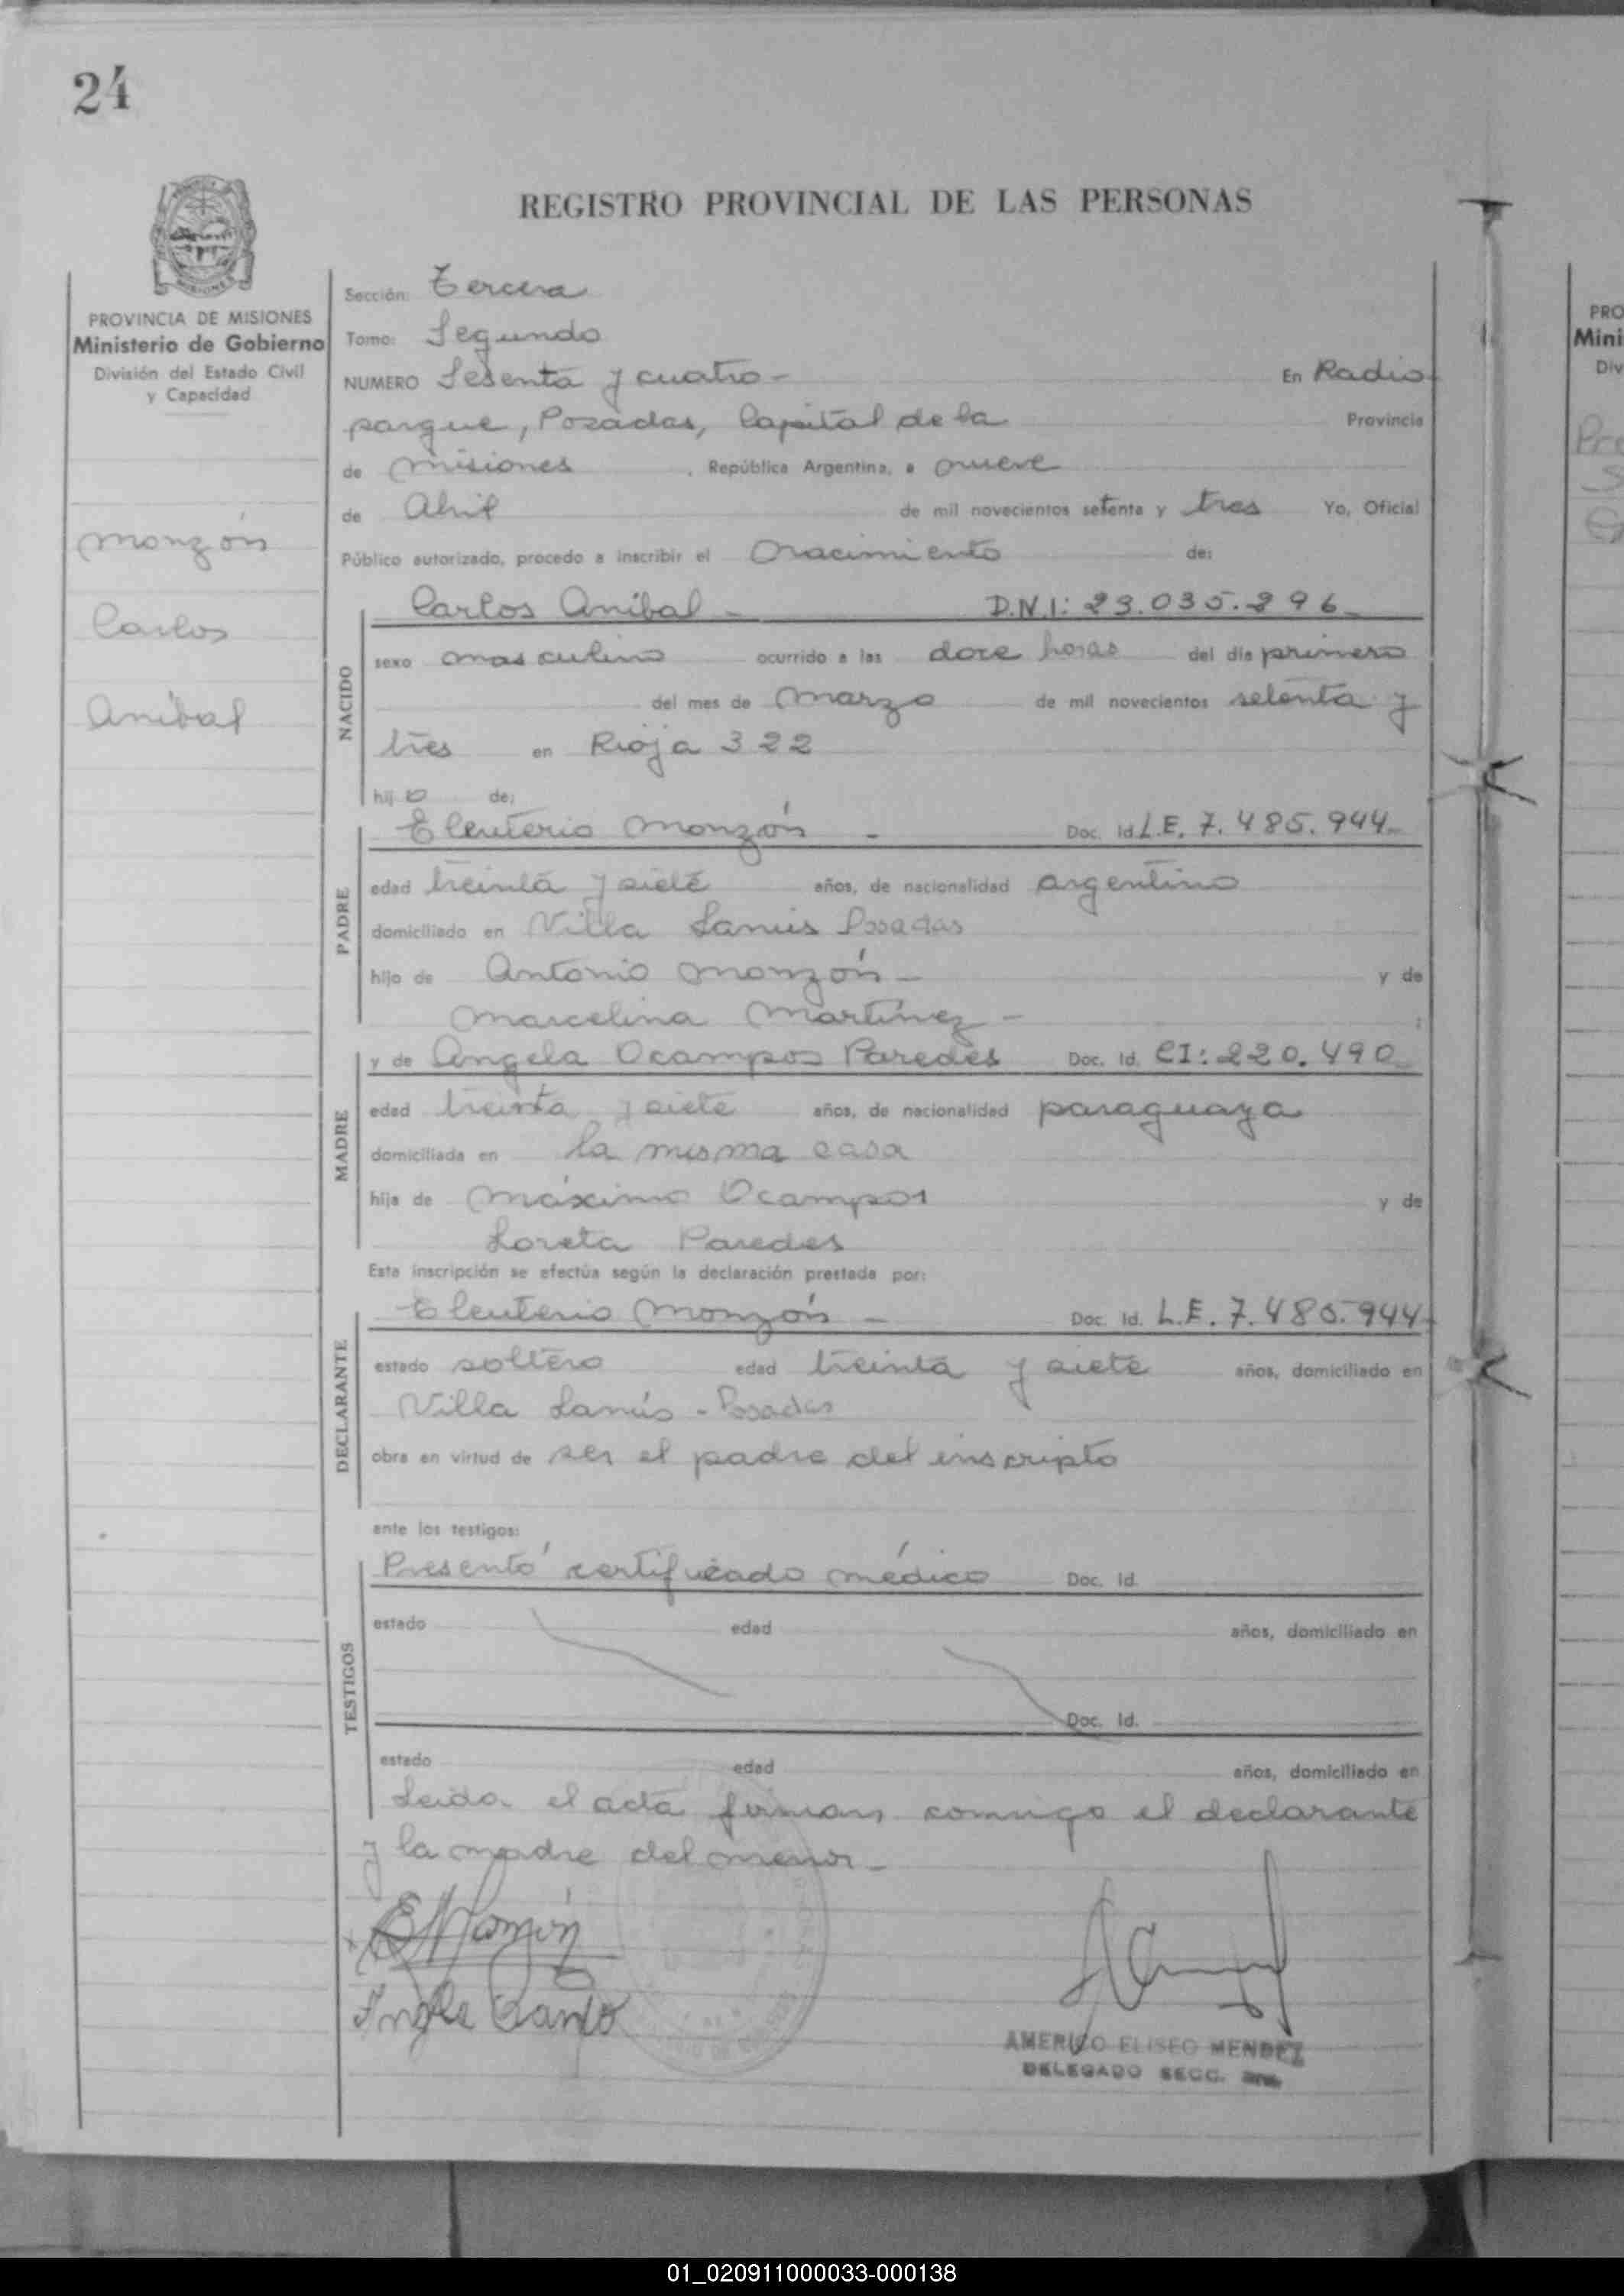 24
REGISTRO PROVINCIAL DE LAS PERSONAS
PROVINCIA DE MISIONES
Ministerio de Gobierno
División del Estado Civil
y Capacidad
Monzón
Carlos
Anibal
Sección: Tercera
Tomo: Segundo
NUMERO Sesenta y cuatro - En Radio
parque, Posadas, Capital de la Provincia
de Misiones , República Argentina, a nueve
de Abril de mil novecientos setenta y tres Yo, Oficial
Público autorizado, procedo a inscribir el Nacimiento de:
NACIDO
Carlos Anibal - D.N.I: 23.035.296
sexo masculino ocurrido a las doce horas del día primero
del mes de Marzo de mil novecientos setenta y
tres en Rioja 322
hijo de:
PADRE
Eleuterio Monzón - Doc. Id. L.E. 7.485.944
edad treinta y siete años, de nacionalidad argentino
domiciliado en Villa Lanús Posadas
hijo de Antonio Monzón - y de
Marcelina Martínez - ;
MADRE
y de Angela Ocampos Paredes Doc. Id. CI: 220.490
edad treinta y siete años, de nacionalidad paraguaya
domiciliada en la misma casa
hija de Máximo Ocampos y de
Loreta Paredes
Esta inscripción se efectúa según la declaración prestada por:
DECLARANTE
Eleuterio Monzón - Doc. Id. L.E. 7.485.944
estado soltero edad treinta y siete años, domiciliado en
Villa Lanús - Posadas
obra en virtud de ser el padre del inscripto
ante los testigos:
TESTIGOS
Presentó certificado médico Doc. Id.
estado edad años, domiciliado en
Doc. Id.
estado edad años, domiciliado en
Leida el acta firman conmigo el declarante
y la madre del menor -
AMERICO ELISEO MENDEZ
DELEGADO SECC. 3ra.
PRO
Mini
Div
01_020911000033-000138